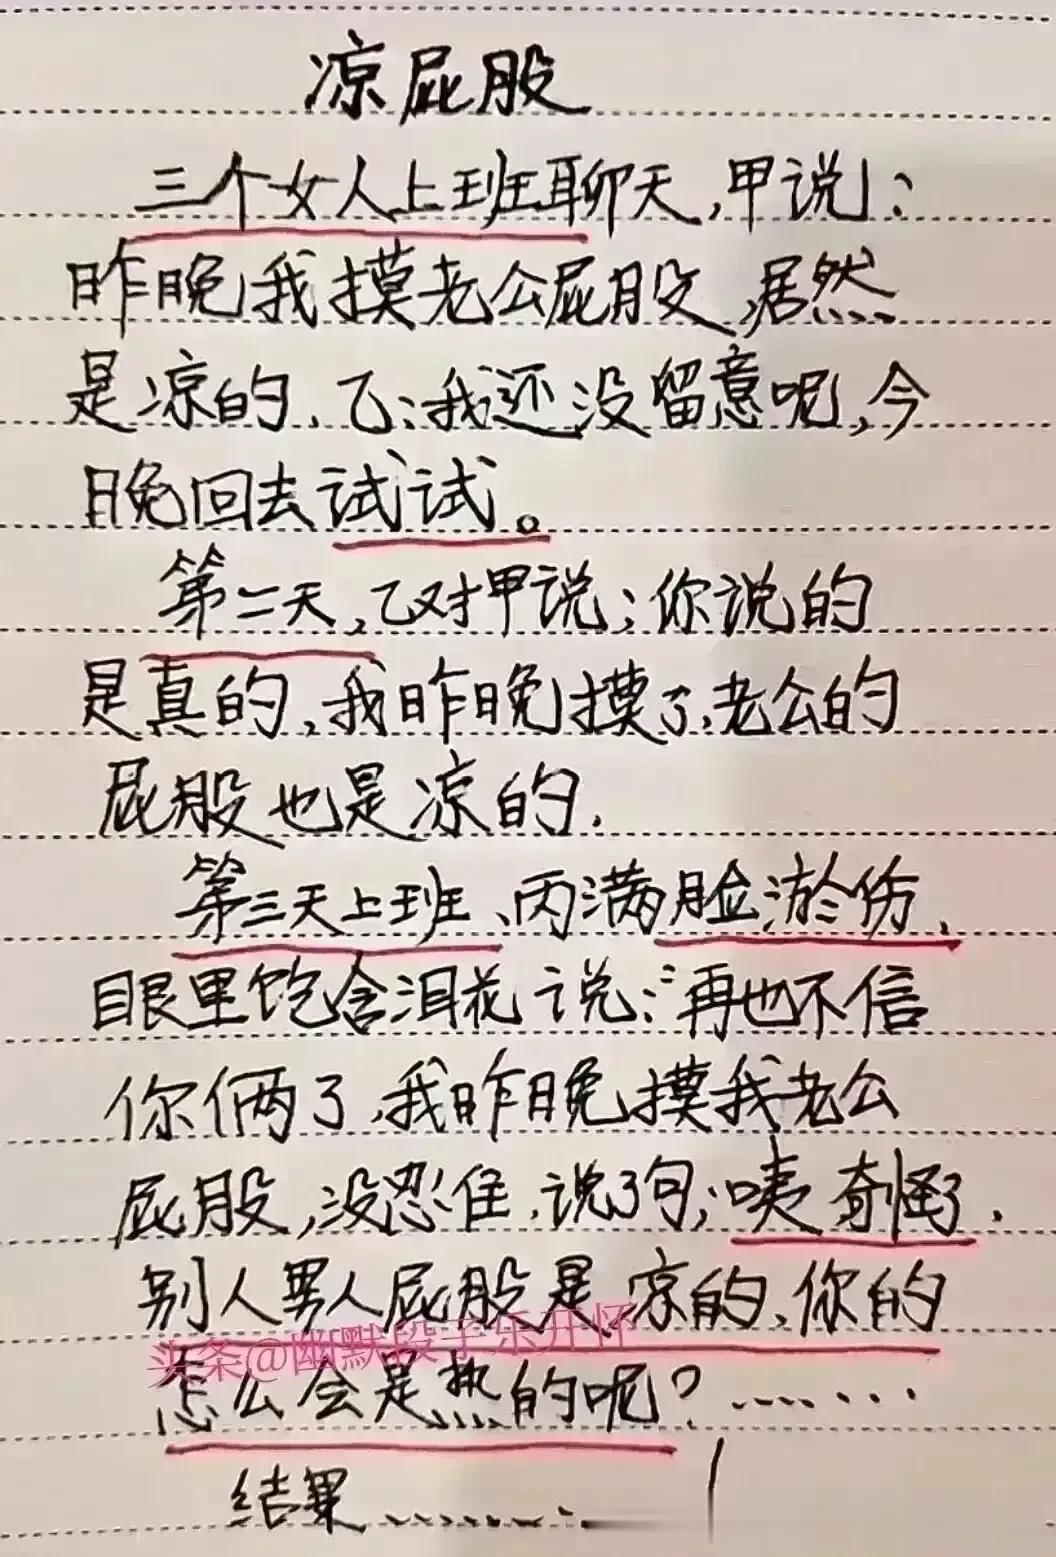 凉屁股
三个女人上班聊天,甲说:
昨晚我摸老公屁股,居然
是凉的,乙:我还没留意呢,今
晚回去试试。
第二天,乙对甲说:你说的
是真的,我昨晚摸了,老公的
屁股也是凉的.
第三天上班、丙满脸淤伤,
眼里饱含泪花说:再也不信
你俩了,我昨晚摸我老公
屁股,没忍住,说了句;咦奇怪了,
别人男人屁股是凉的、你的
头条@幽默段子乐开怀
怎么会是热的呢?……
结果………